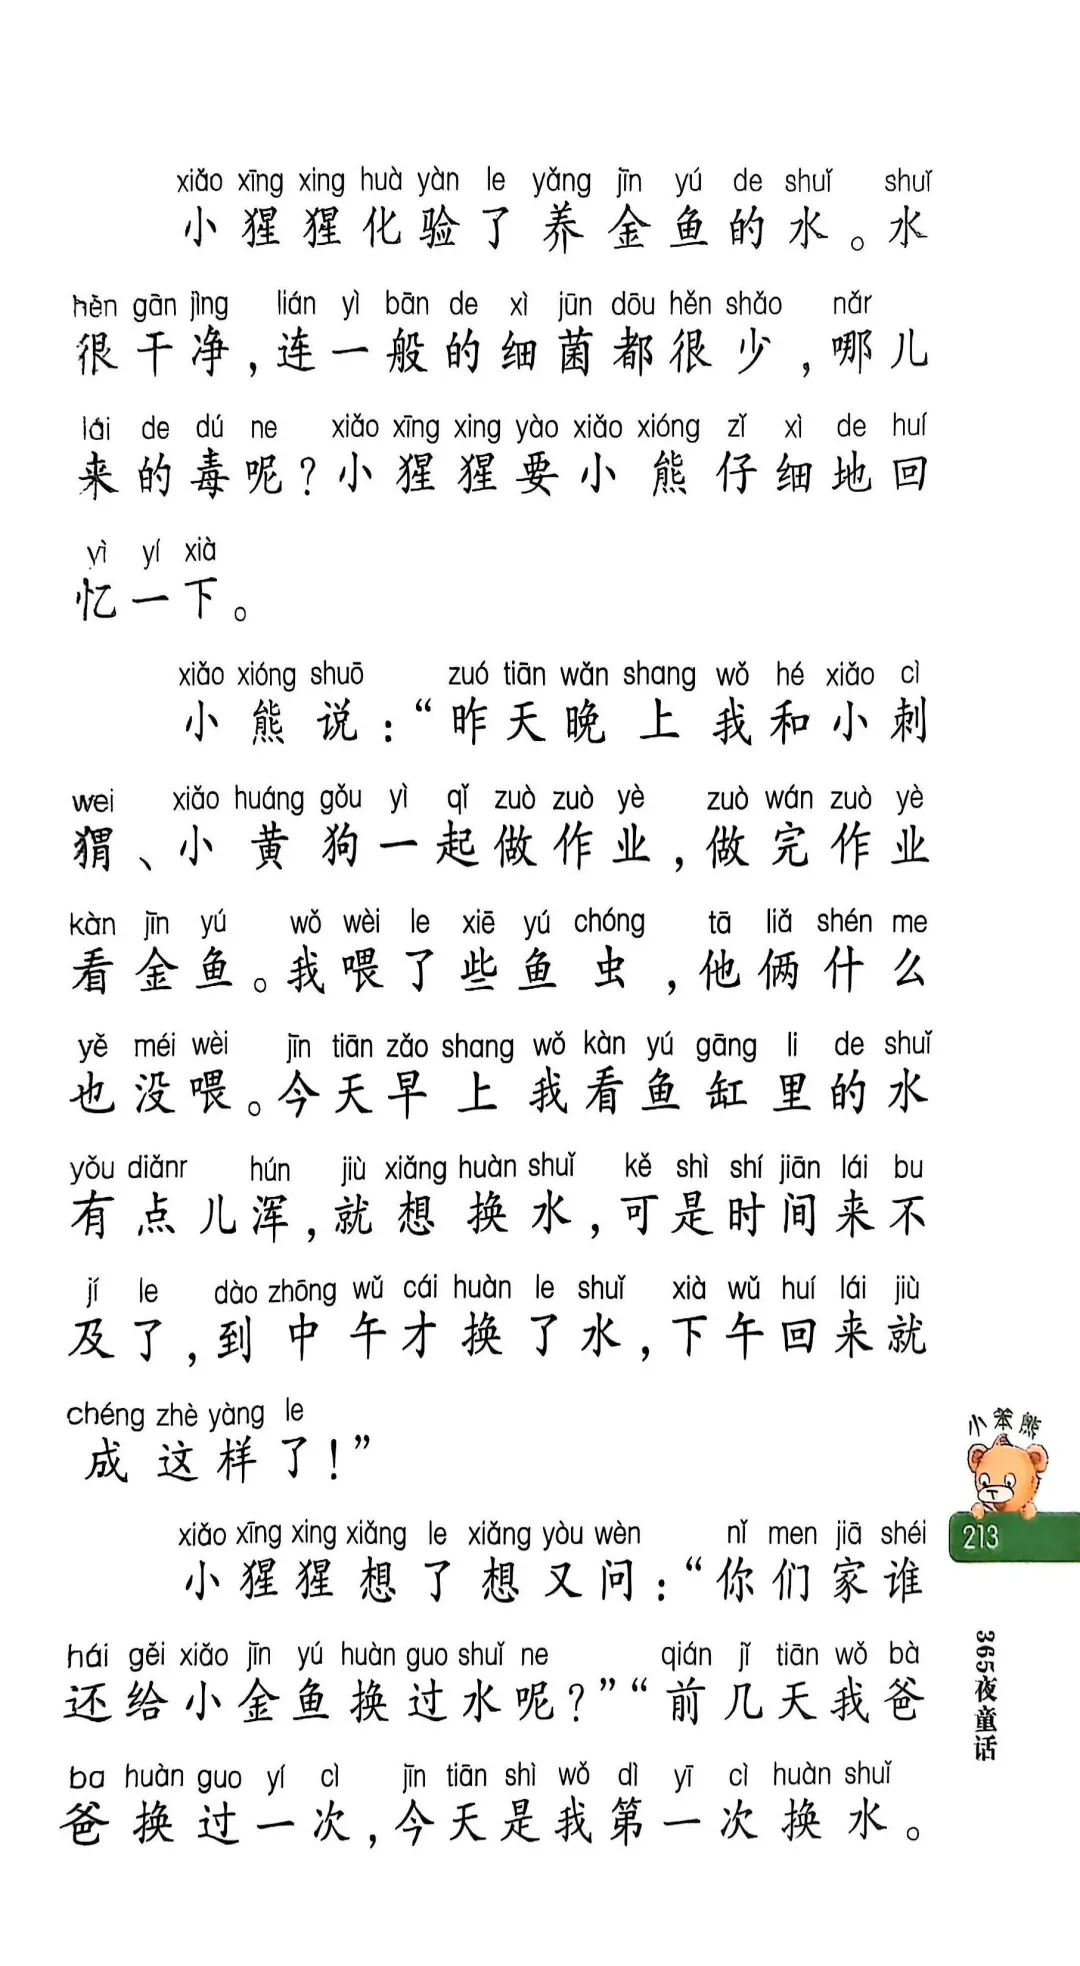 xiǎo xīng xing huà yàn le yǎng jīn yú de shuǐ shuǐ
小猩猩化验了养金鱼的水。水
hěn gān jìng lián yì bān de xì jūn dōu hěn shǎo nǎr
很干净,连一般的细菌都很少,哪儿
lái de dú ne xiǎo xīng xing yào xiǎo xióng zǐ xì de huí
来的毒呢?小猩猩要小熊仔细地回
yì yí xià
忆一下。
xiǎo xióng shuō zuó tiān wǎn shang wǒ hé xiǎo cì
小熊说:“昨天晚上我和小刺
wei xiǎo huáng gǒu yì qǐ zuò zuò yè zuò wán zuò yè
猬、小黄狗一起做作业,做完作业
kàn jīn yú wǒ wèi le xiē yú chóng tā liǎ shén me
看金鱼。我喂了些鱼虫,他俩什么
yě méi wèi jīn tiān zǎo shang wǒ kàn yú gāng li de shuǐ
也没喂。今天早上我看鱼缸里的水
yǒu diǎnr hún jiù xiǎng huàn shuǐ kě shì shí jiān lái bu
有点儿浑,就想换水,可是时间来不
jí le dào zhōng wǔ cái huàn le shuǐ xià wǔ huí lái jiù
及了,到中午才换了水,下午回来就
chéng zhè yàng le
成这样了!”
xiǎo xīng xing xiǎng le xiǎng yòu wèn nǐ men jiā shéi
小猩猩想了想又问:“你们家谁
hái gěi xiǎo jīn yú huàn guo shuǐ ne qián jǐ tiān wǒ bà
还给小金鱼换过水呢?”“前几天我爸
ba huàn guo yí cì jīn tiān shì wǒ dì yī cì huàn shuǐ
爸换过一次,今天是我第一次换水。
小笨熊
213
365夜童话